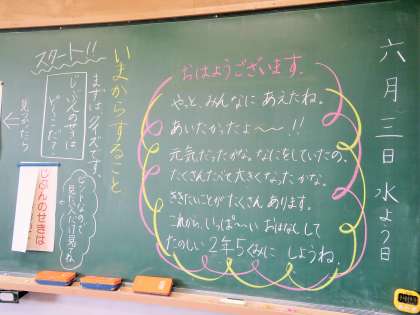 六月三日水よう日
おはようございます。
やっと、みんなに あえたね。
あいたかったよ〜〜!!
元気だったかな。なにをしていたの。
たくさんたべて大きくなったかな。
ききたいことが たくさん あります。
これから、いっぱ〜い おはなしして
たのしい 2年5くみに しようね。
いまからすること
まずは クイズです。
じぶんのせきは
どこかな?
スタート!!
見つけたら
じぶんのせきは
ヒントなので
見たい人だけ見てね